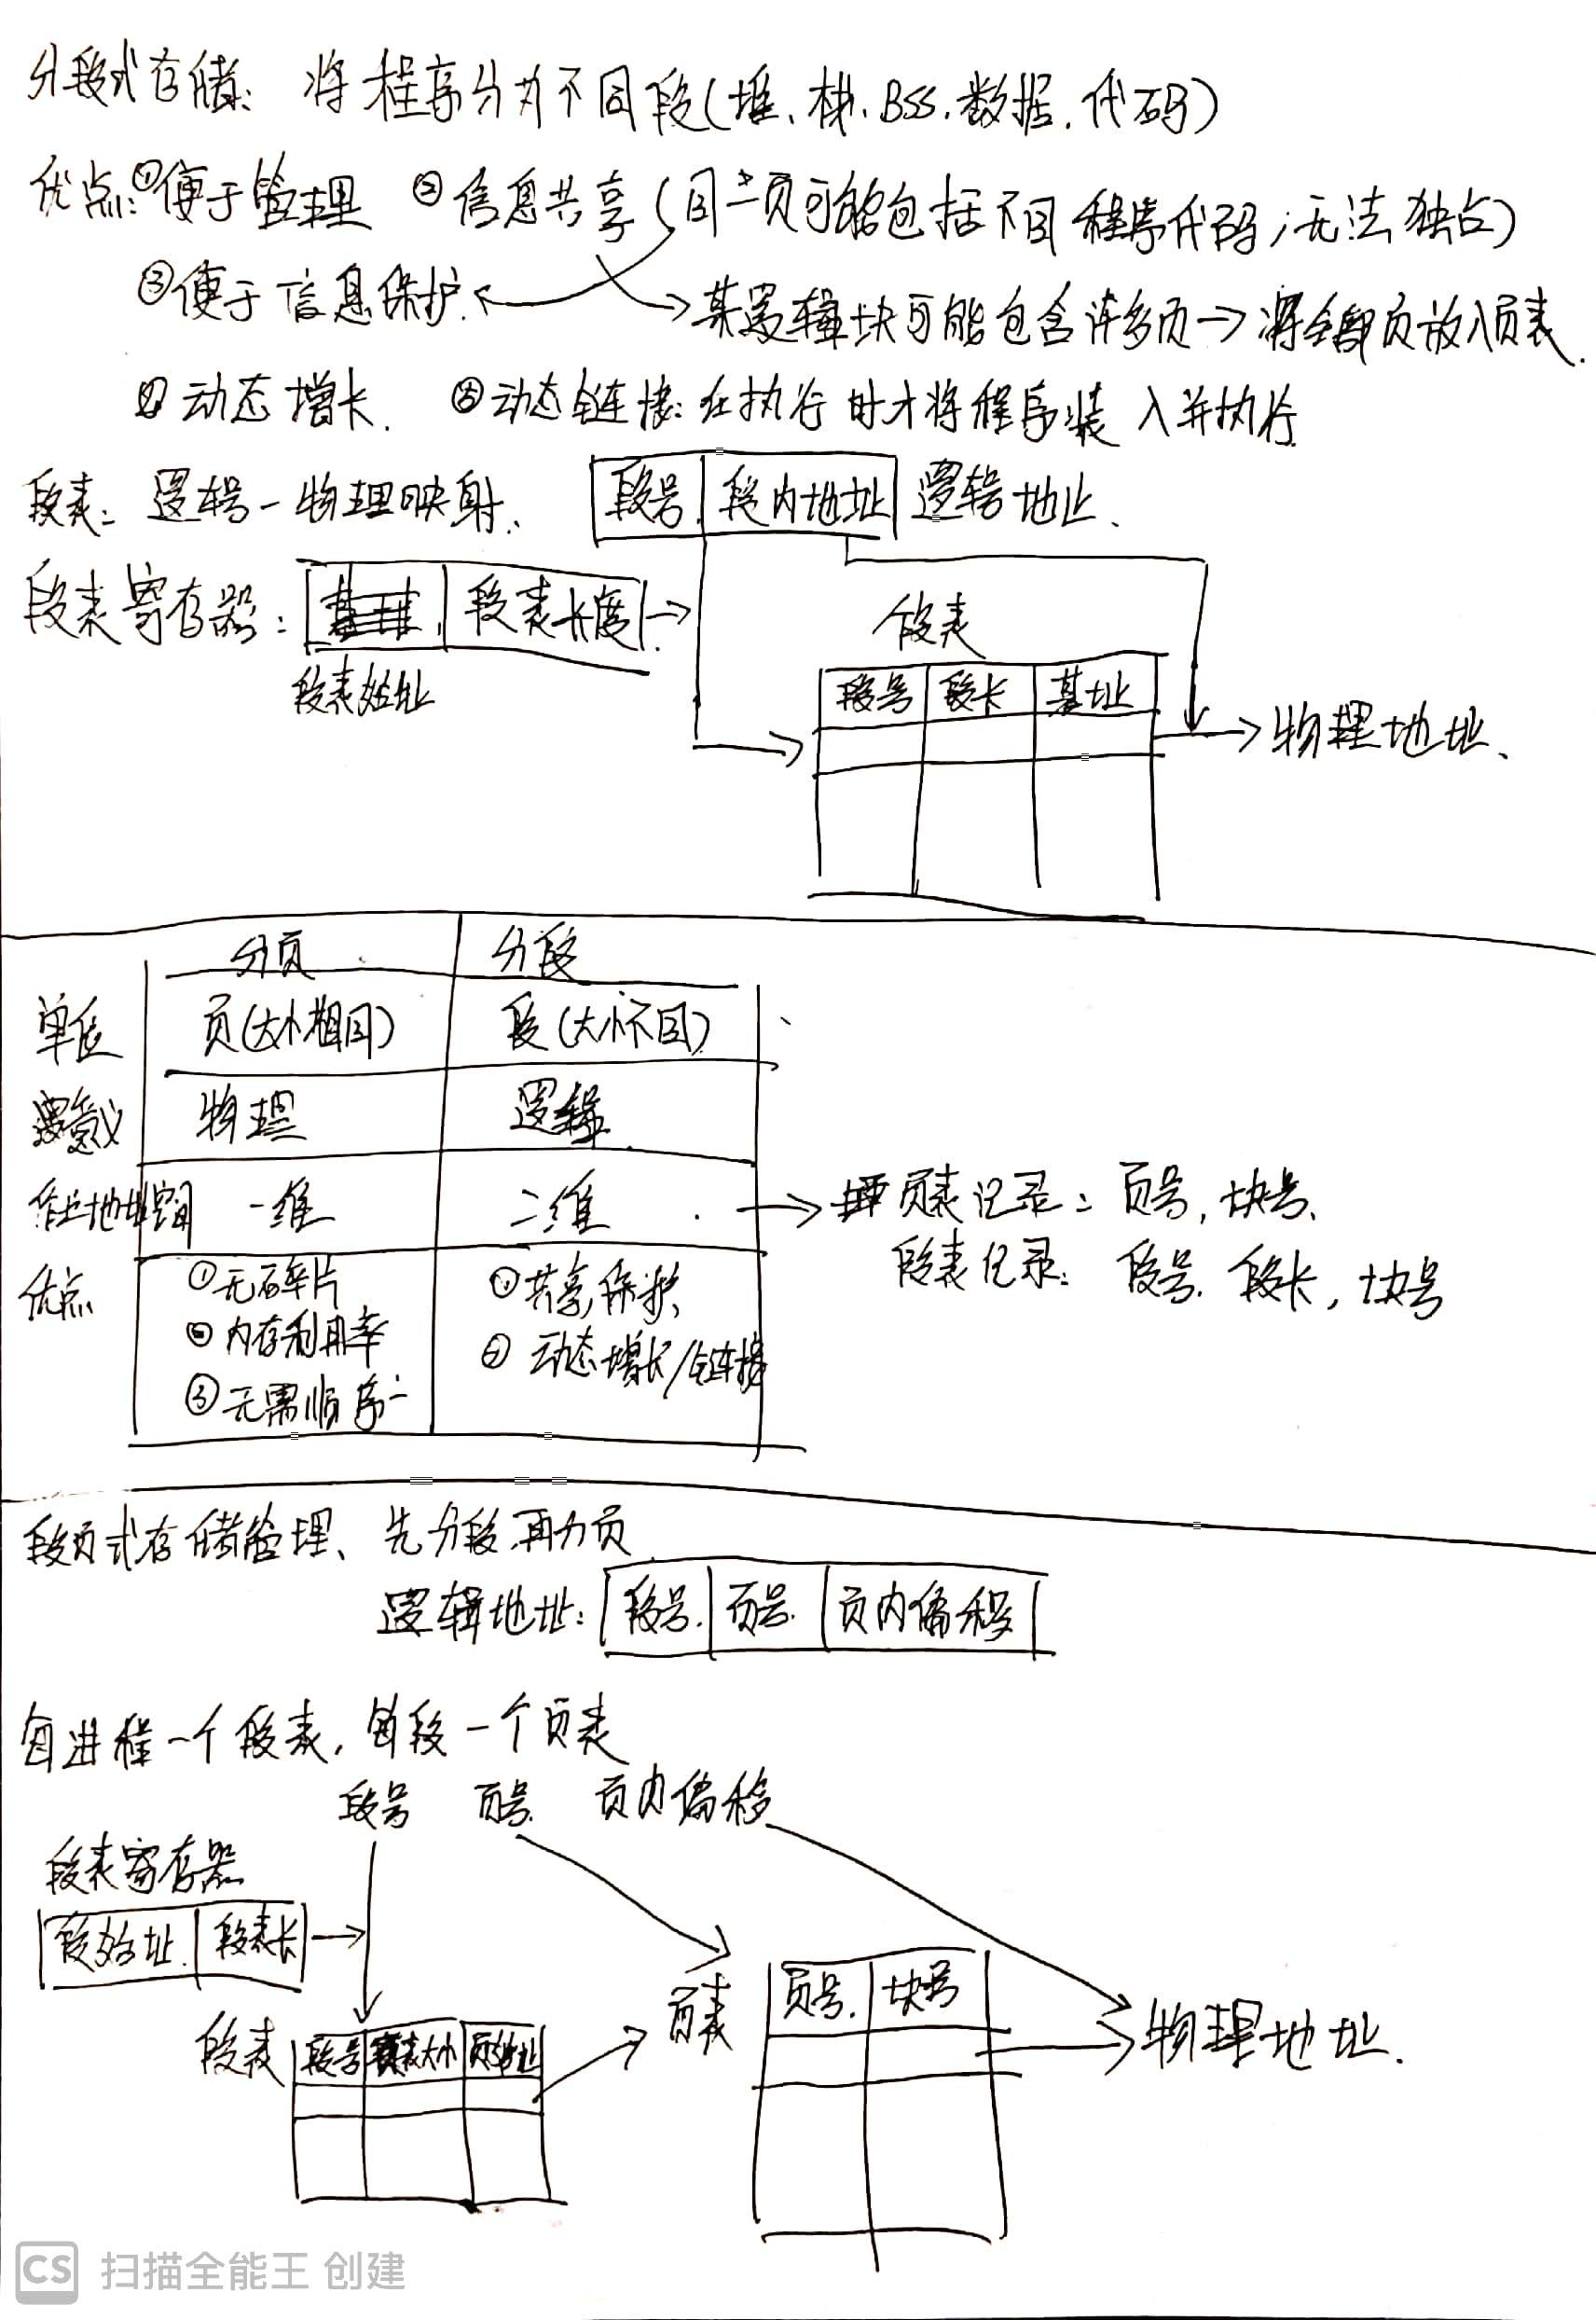 分段式存储: 将程序分为不同段(堆、栈、BSS、数据、代码)
优点:①便于管理 ②信息共享(同一页可能包括不同程序代码,无法独占)
③便于信息保护. 某逻辑块可能包含许多页→将全部页放入页表.
④动态增长. ⑤动态链接:在执行时才将程序装入并执行
段表: 逻辑-物理映射. 段号 段内地址 逻辑地址.
段表寄存器: 段表长度
段表始址
段表
段号 段长 基址
物理地址.
分页 分段
单位 页(大小相同) 段(大小不同)
意义 物理 逻辑
作业地址空间 一维 二维 → 页表记录: 页号, 块号.
段表记录: 段号. 段长, 块号
优点 ①无碎片 ①共享,保护
②内存利用率 ②动态增长/链接
③无需顺序
段页式存储管理、先分段,再分页
逻辑地址: 段号. 页号. 页内偏移
每进程一个段表, 每段一个页表
段号 页号 页内偏移
段表寄存器
段始址 段表长
段表 段号 页表大小 页始址
页表 页号. 块号
物理地址.
CS 扫描全能王 创建